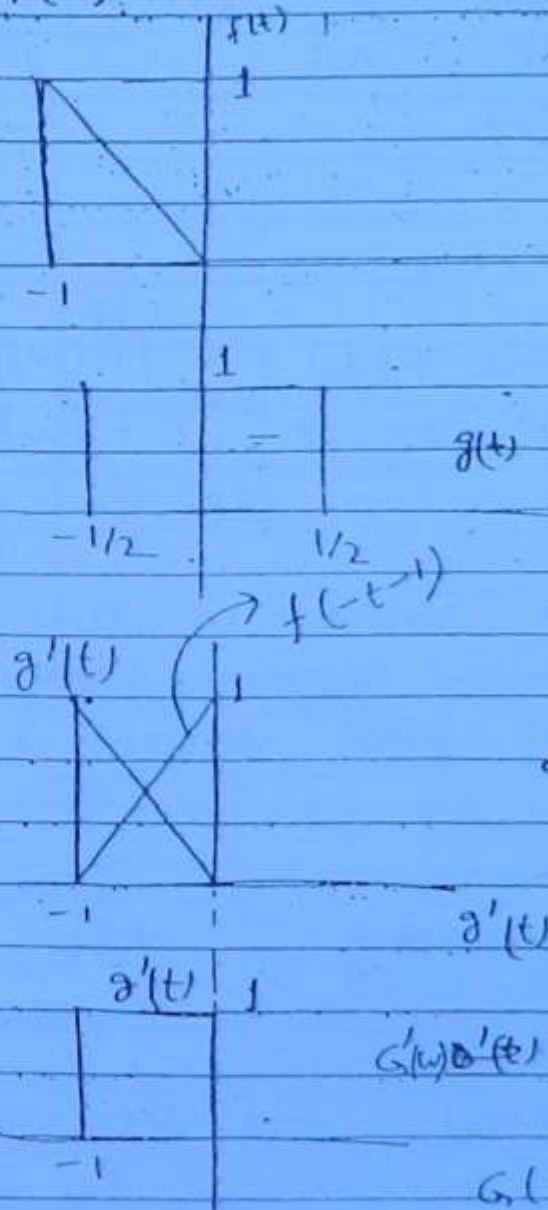 f(t)
1
-1
1
g(t)
-1/2 1/2
f(-t-1)
g'(t)
1
-1
g'(t)
g'(t) 1
G'(w)
-1
G(